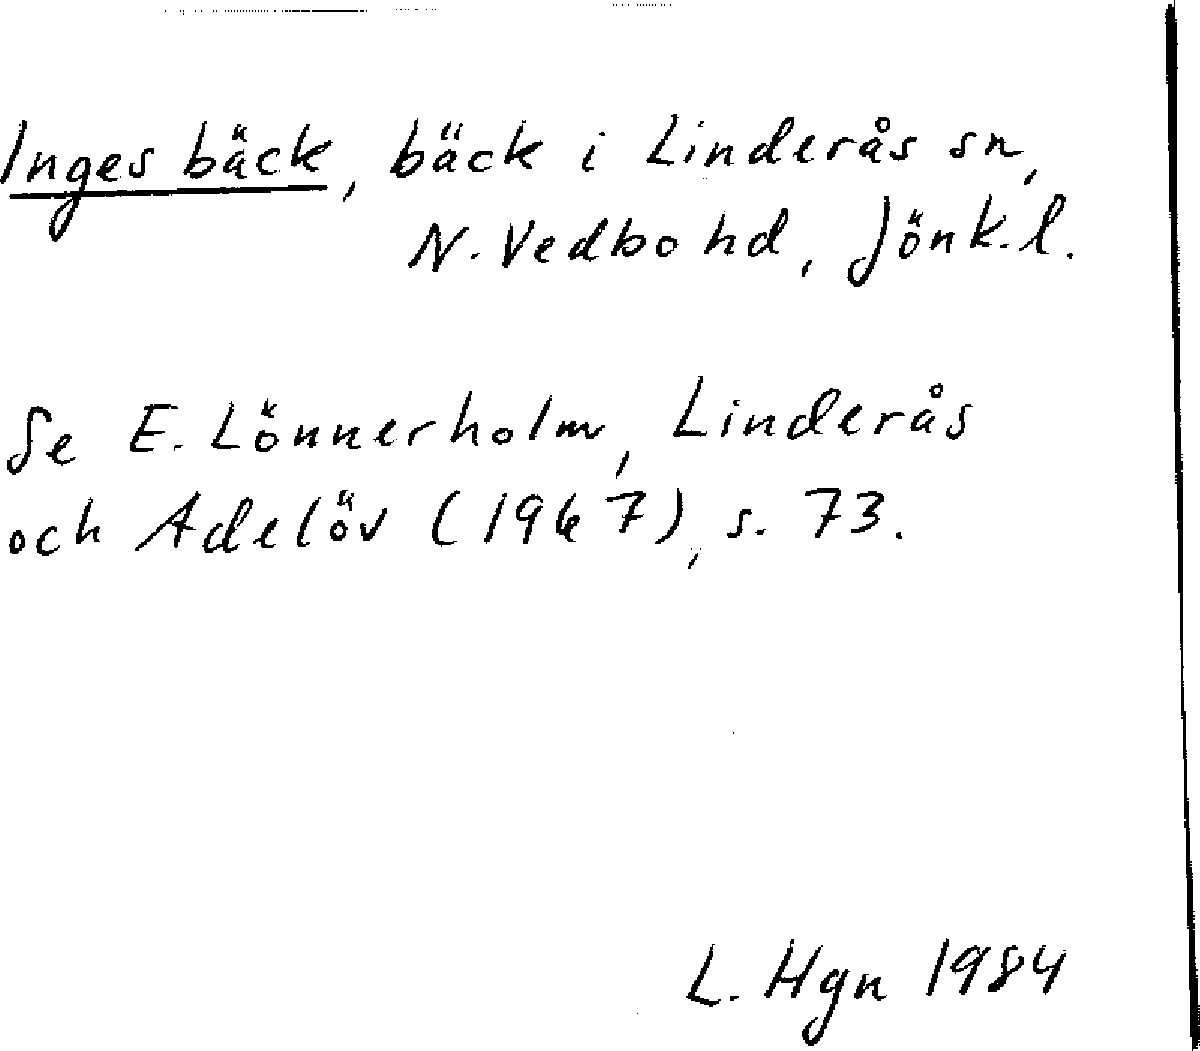 Inges bäck, bäck i Linderås sn,
N. Vedbo hd, Jönk. l.
Se E. Lönnerholm, Linderås
och Adelöv (1967), s. 73.
L. Hgn 1984